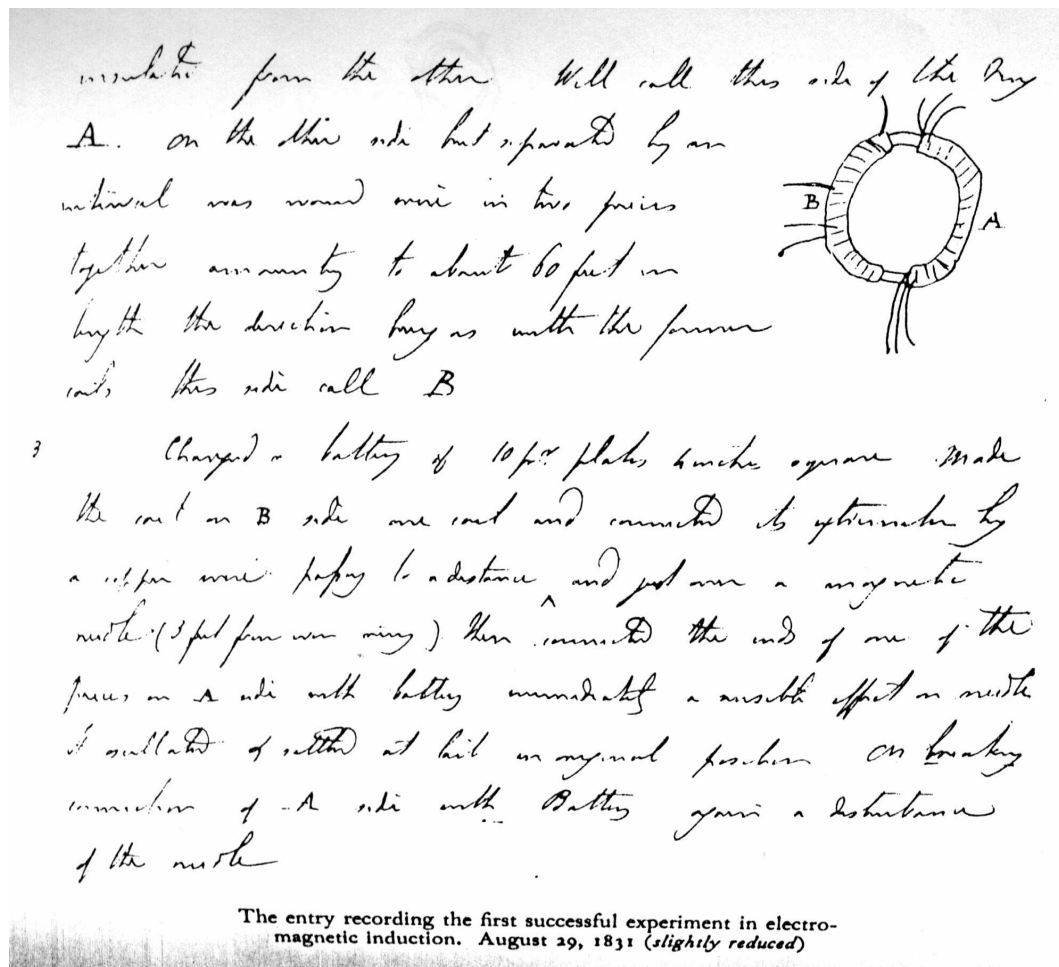 insulated from the other. Will call this side of the Ring
A. on the other side but separated by an
interval was wound wire in two pieces
together amounting to about 60 feet in
length the direction being as with the former
coils this side call B
B
A
3 Charged a battery of 10 pr. plates 4 inches square. Made
the coil on B side one coil and connected its extremities by
a copper wire passing to a distance and just over a magnetic
needle (3 feet from iron ring) then connected the ends of one of the
pieces on A side with battery immediately a sensible effect on needle
It oscillated & settled at last in original position On breaking
connection of A side with Battery again a disturbance
of the needle
The entry recording the first successful experiment in electro-
magnetic induction. August 29, 1831 (slightly reduced)